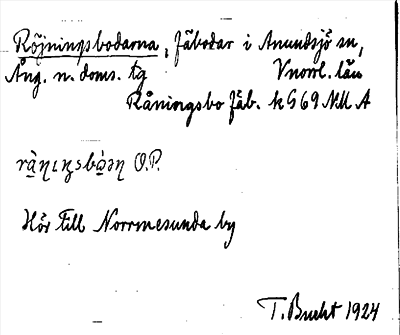 Röjningsbodarna, Fäbodar i Anundsjö sn,
Ång. n. doms. tg Vnorrl. län
Råningsbo Fäb. k G 69 NM A
O.P.
Hör till Norrmesunda by
T. Bucht 1924